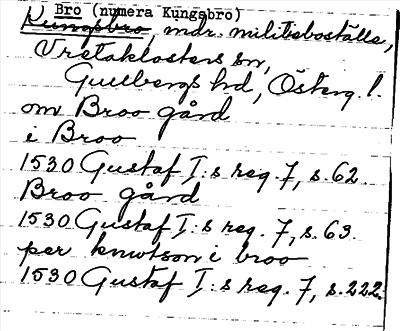 Bro (numera Kungsbro)
Kungsbro, mdr. militieboställe,
Vretaklosters sn,
Gullbergs hd, Österg. l.
om Broo gård
i Broo
1530 Gustaf I:s reg. 7, s. 62.
Broo gård
1530 Gustaf I:s reg. 7, s. 63.
per knutson i broo
1530 Gustaf I:s reg. 7, s. 222.